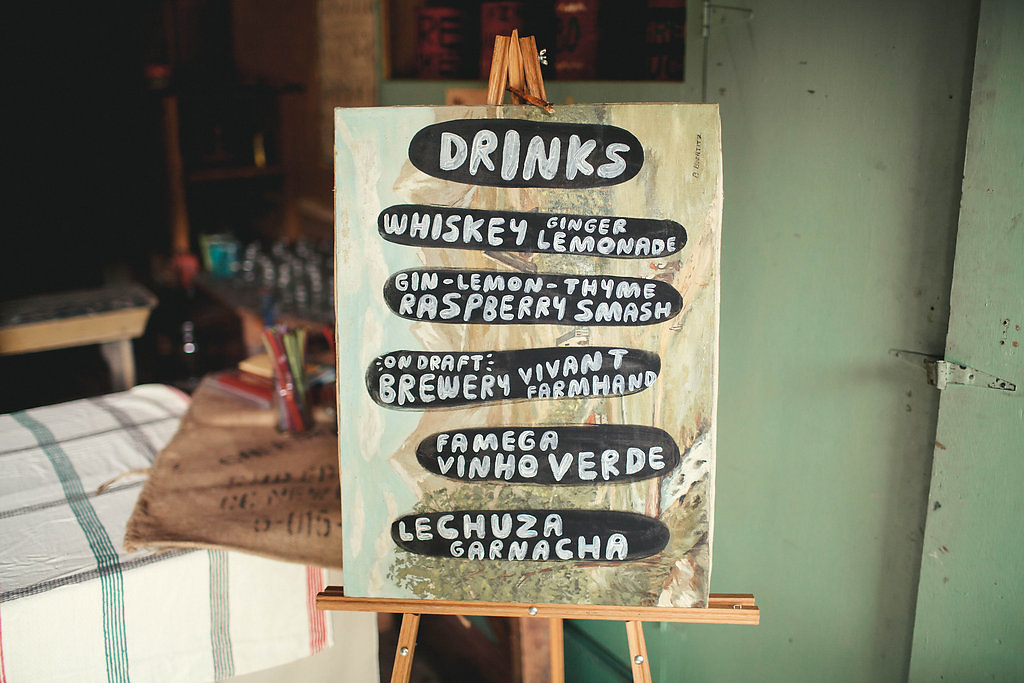 DRINKS
WHISKEY GINGER LEMONADE
GIN-LEMON-THYME
RASPBERRY SMASH
ON DRAFT:
BREWERY VIVANT FARMHAND
FAMEGA
VINHO VERDE
LECHUZA
GARNACHA